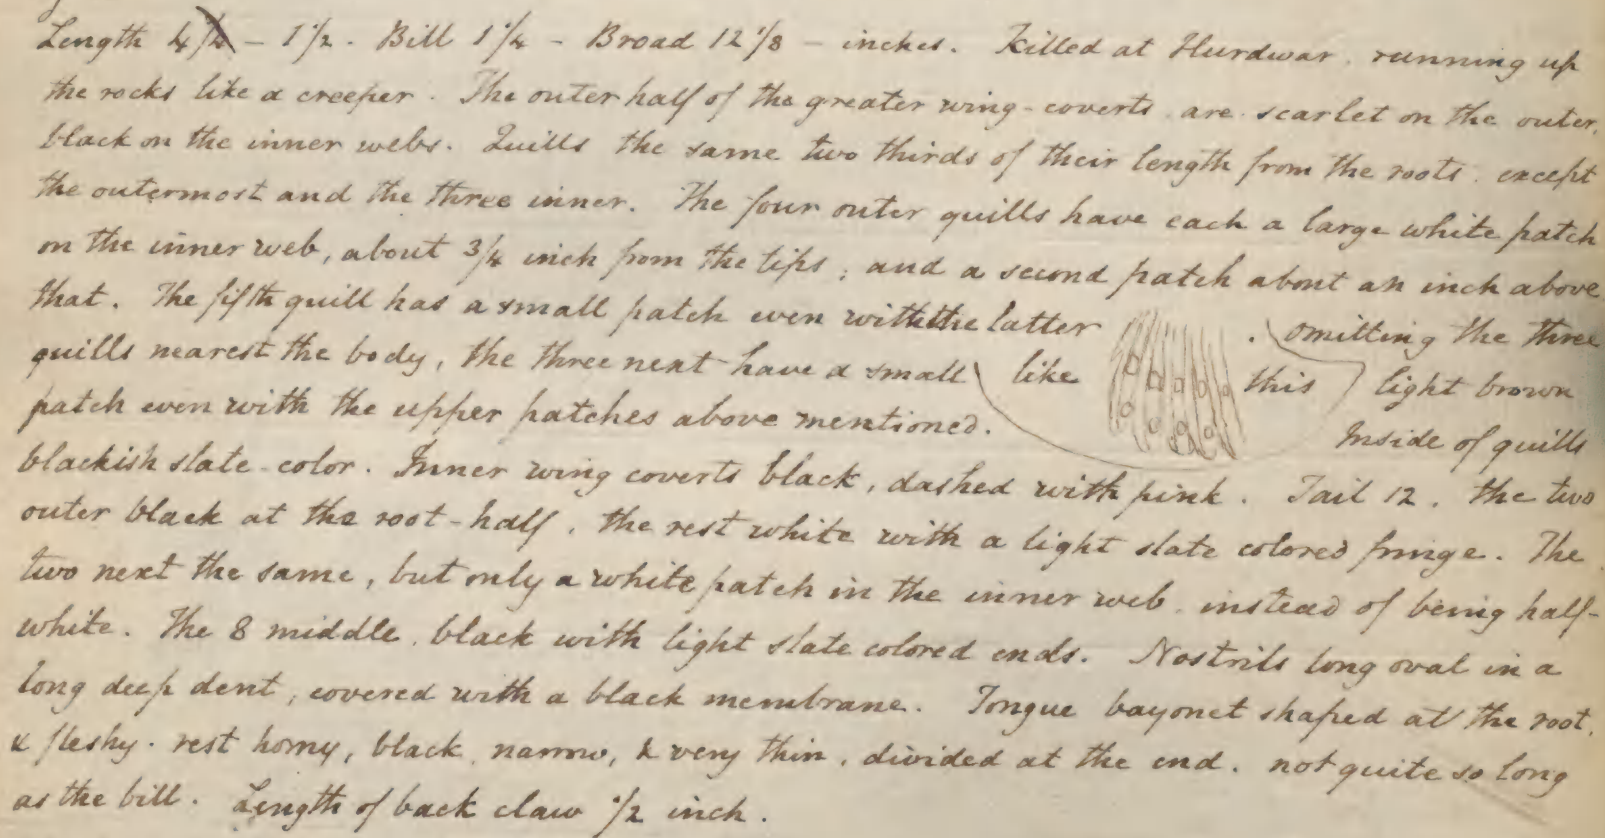 Length 4 1/4 - 1 1/2. Bill 1 1/4 - Broad 12 1/8 - inches. Killed at Hurdwar, running up
the rocks like a creeper. The outer half of the greater wing-coverts are scarlet on the outer,
black on the inner webs. Quills the same two thirds of their length from the roots, except
the outermost and the three inner. The four outer quills have each a large white patch
on the inner web, about 3/4 inch from the tips; and a second patch about an inch above
that. The fifth quill has a small patch even with the latter . omitting the three
quills nearest the body, the three next have a small like this light brown
patch even with the upper patches above mentioned. Inside of quills
blackish slate-color. Inner wing coverts black, dashed with pink. Tail 12. the two
outer black at the root-half, the rest white with a light slate colored fringe. The
two next the same, but only a white patch in the inner web, instead of being half-
white. The 8 middle, black with light slate colored ends. Nostrils long oval in a
long deep dent, covered with a black membrane. Tongue bayonet shaped at the root,
& fleshy. rest horny, black, narrow, & very thin, divided at the end. not quite so long
as the bill. Length of back claw 1/2 inch.